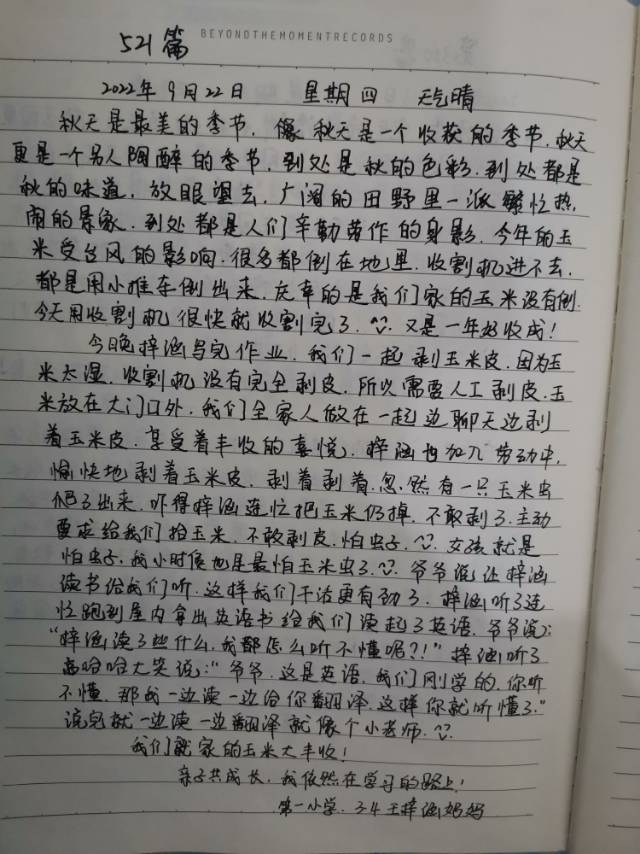 BEYONDTHEMOMENTRECORDS
521篇
2022年9月22日 星期四 天气晴
秋天是最美的季节,像秋天是一个收获的季节,秋天
更是一个另人陶醉的季节,到处是秋的色彩,到处都是
秋的味道,放眼望去,广阔的田野里一派繁忙热
闹的景象,到处都是人们辛勤劳作的身影,今年的玉
米受台风的影响,很多都倒在地里,收割机进不去,
都是用小推车倒出来,庆幸的是我们家的玉米没有倒,
今天用收割机很快就收割完了,又是一年好收成!
今晚梓涵写完作业,我们一起剥玉米皮,因为玉
米太湿,收割机没有完全剥皮,所以需要人工剥皮,玉
米放在大门口外,我们全家人做在一起边聊天边剥
着玉米皮,享受着丰收的喜悦,梓涵也加入劳动中,
愉快地剥着玉米皮,剥着剥着,忽然有一只玉米虫
爬了出来,吓得梓涵连忙把玉米仍掉,不敢剥了,主动
要求给我们拾玉米,不敢剥皮,怕虫子,女孩就是
怕虫子,我小时候也是最怕玉米虫了,爷爷说让梓涵
读书给我们听,这样我们干活更有劲了,梓涵听了连
忙跑到屋内拿出英语书给我们读起了英语,爷爷说:
“梓涵读了些什么,我都怎么听不懂呢?!”梓涵听了
高哈哈大笑说:“爷爷,这是英语,我们刚学的,你听
不懂,那我一边读一边给你翻译,这样你就听懂了.”
说完就一边读一边翻译就像个小老师.
我们家的玉米大丰收!
亲子共成长,我依然在学习的路上!
第一小学 3.4 王梓涵妈妈